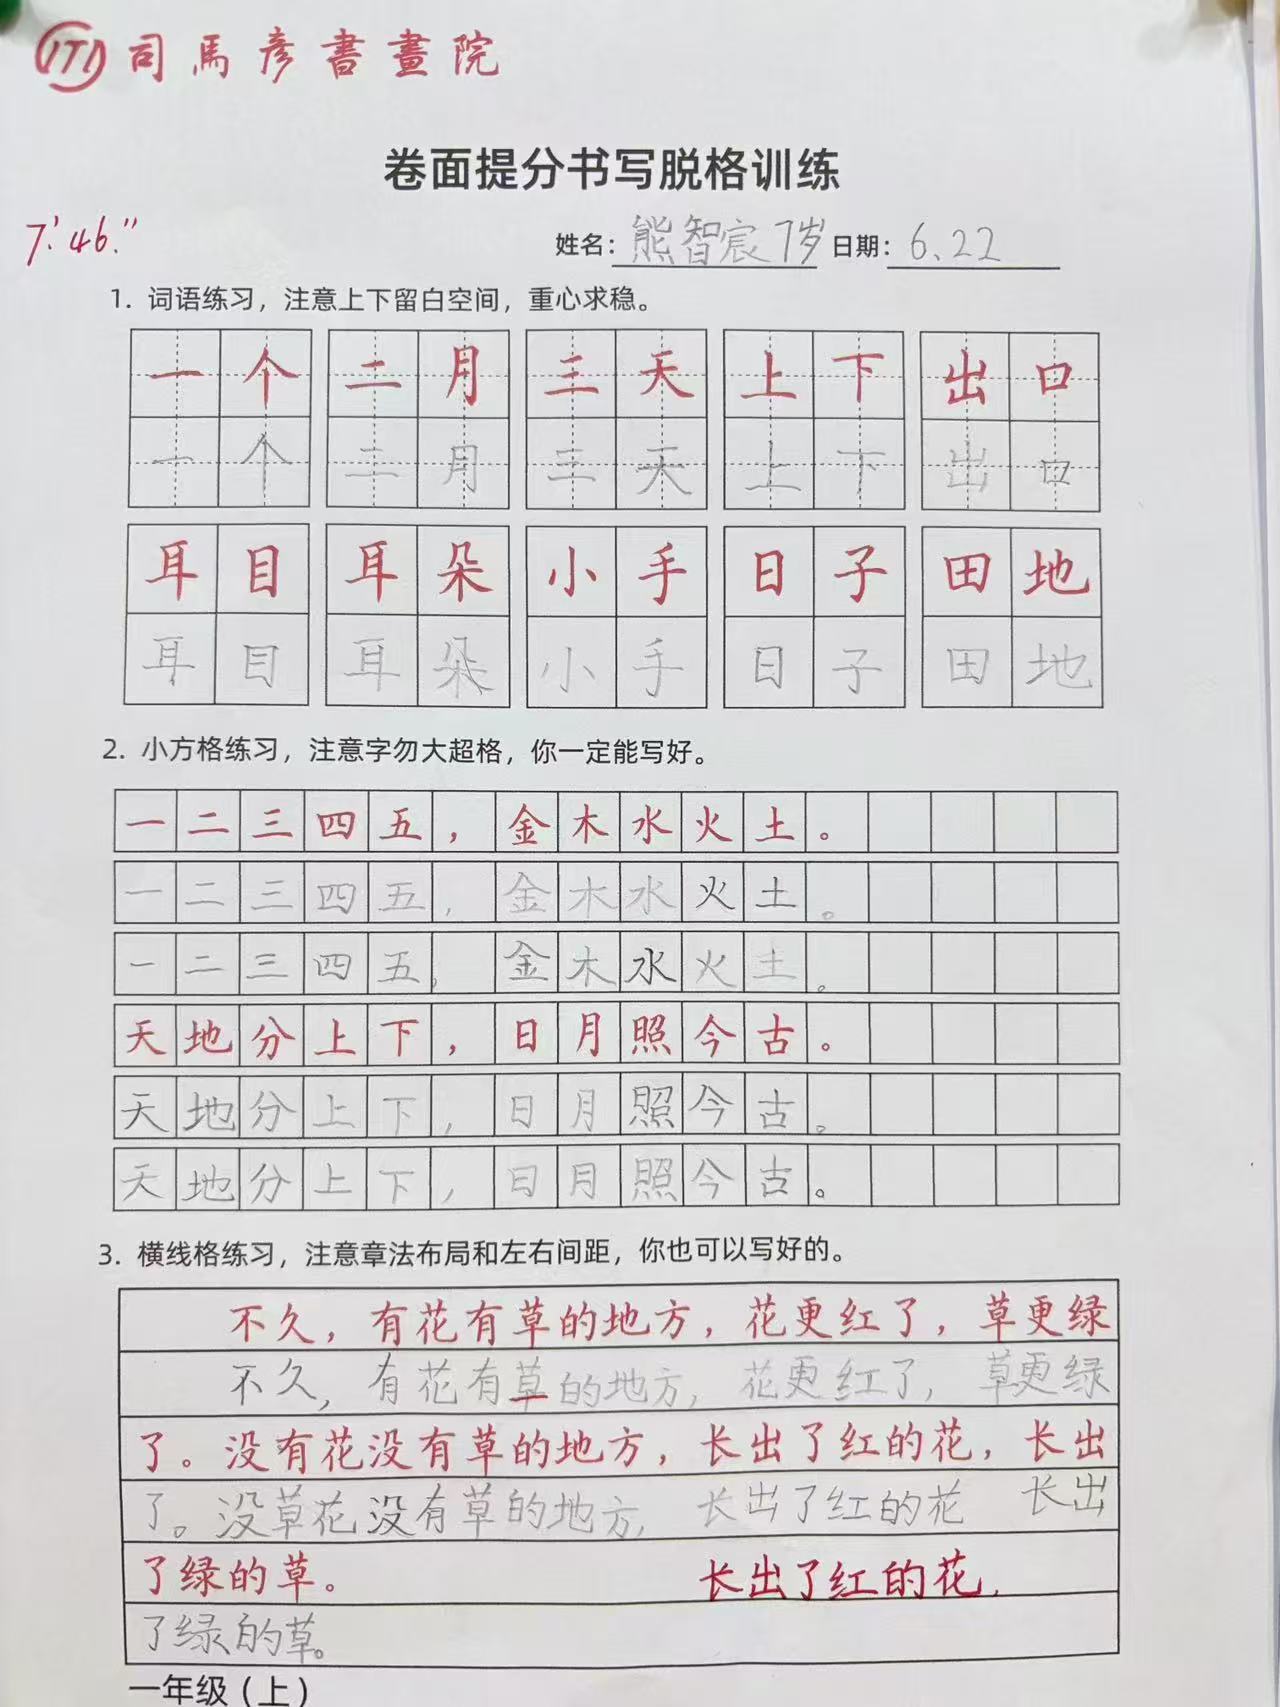 司馬彦書畫院
卷面提分书写脱格训练
7'46."
姓名：熊智宸7岁 日期：6.22
1. 词语练习，注意上下留白空间，重心求稳。
一个 二月 三天 上下 出口
一个 二月 三天 上下 出口
耳目 耳朵 小手 日子 田地
耳目 耳朵 小手 日子 田地
2. 小方格练习，注意字勿大超格，你一定能写好。
一二三四五，金木水火土。
一二三四五，金木水火土。
一二三四五，金木水火土。
天地分上下，日月照今古。
天地分上下，日月照今古。
天地分上下，日月照今古。
3. 横线格练习，注意章法布局和左右间距，你也可以写好的。
不久，有花有草的地方，花更红了，草更绿
不久，有花有草的地方，花更红了，草更绿
了。没有花没有草的地方，长出了红的花，长出
了。没草花没有草的地方，长出了红的花 长出
了绿的草。 长出了红的花，
了绿的草。
一年级（上）